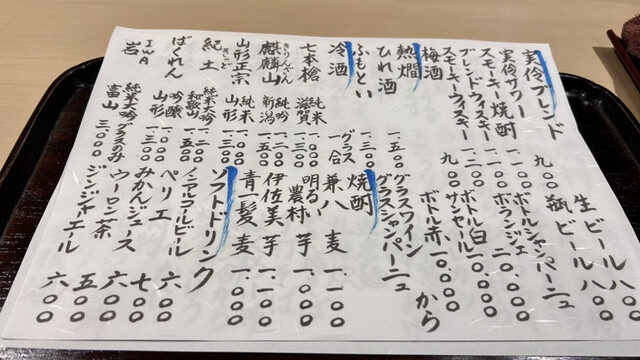 実伶ブレンド
実伶サワー 焼酎 九〇〇
スモーキーウィスキー 一、一〇〇
ブレンドウィスキー
スモーキーウィスキー 九〇〇
梅酒 九〇〇
熱燗
ひれ酒 一、五〇〇
ふもとい 一、三〇〇
冷酒 グラス 一合
七本槍 純米 滋賀 一、〇〇〇
きりんざん
麒麟山 純吟 新潟
山形正宗 純米 山形 一、二〇〇
きど
紀土 純米大吟 和歌山
ばくれん 吟醸 山形 一、三〇〇
IWA
岩 純米大吟 富山 グラスのみ 三、〇〇〇
生ビール 八〇〇
瓶ビール 八〇〇
ボトルシャンパーニュ
ボランジェ 二〇、〇〇〇
ボトル白
サンセール 一〇、〇〇〇
ボトル赤 一〇、〇〇〇から
グラスワイン
グラスシャンパーニュ
焼酎
兼八 麦 一、一〇〇
明るい農村 芋 一、〇〇〇
伊佐美 芋 一、一〇〇
青一髪 麦 一、〇〇〇
ソフトドリンク
ノンアルコールビール 六〇〇
ペリエ 七〇〇
みかんジュース 六〇〇
ウーロン茶 五〇〇
ジンジャーエール 六〇〇